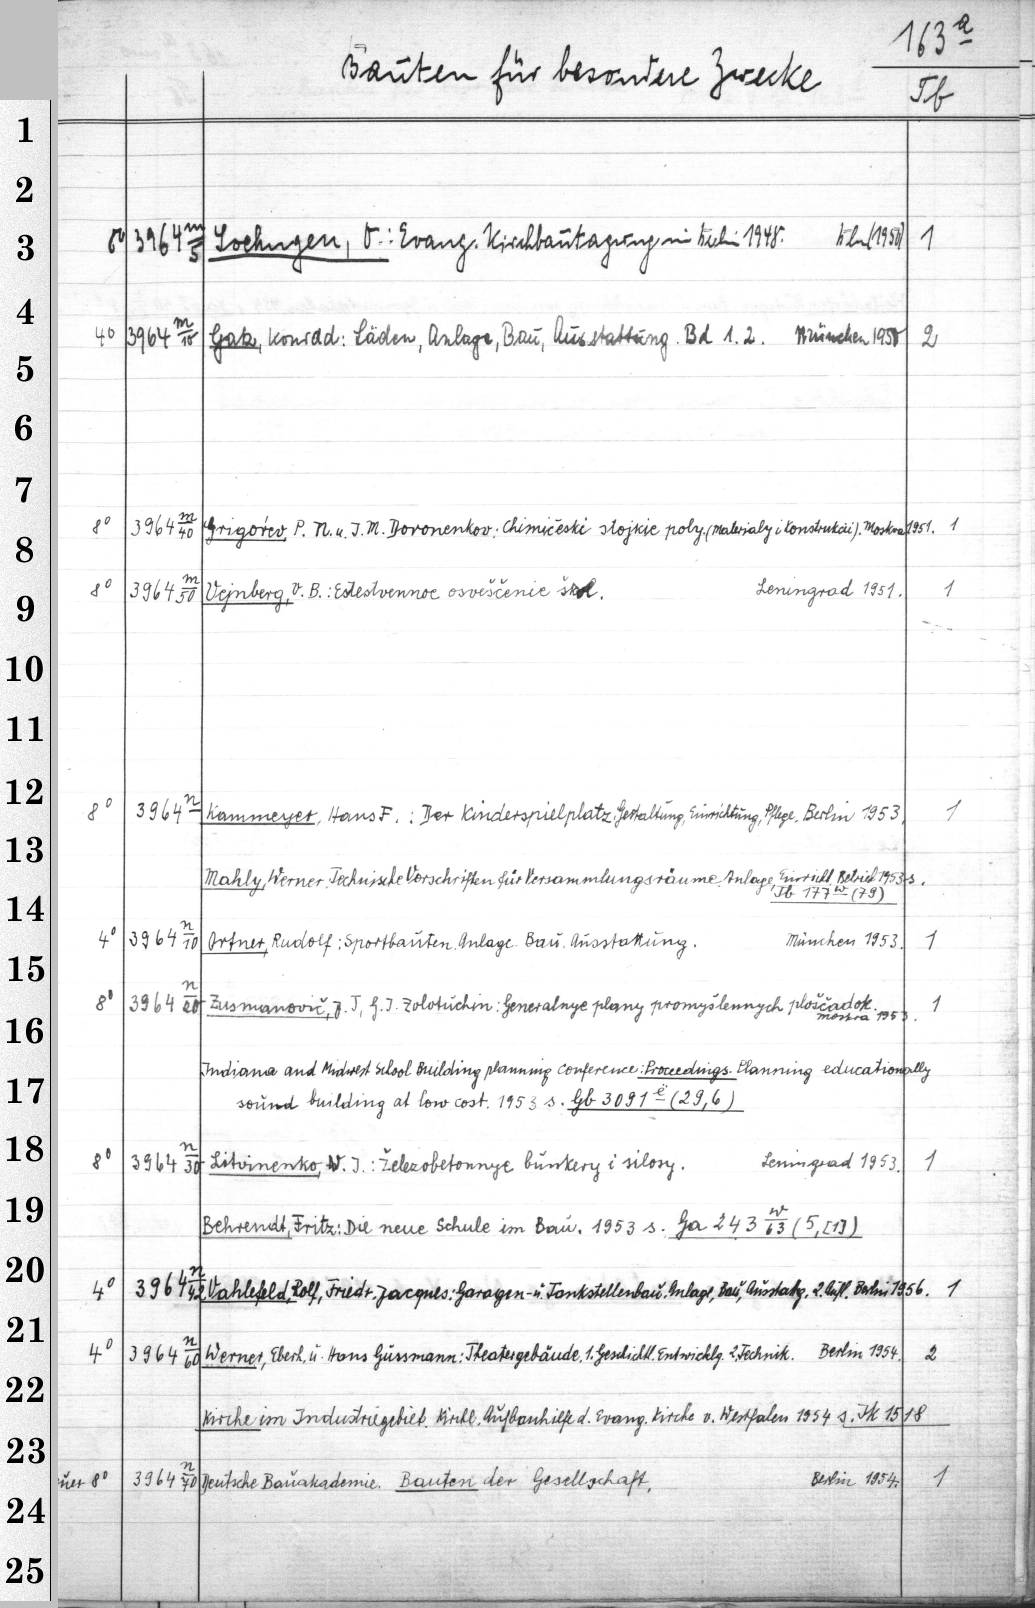 163 a
Bauten für besondere Zwecke
Tb
1
2
3 8° 3964 m/5 Loehngen, O.: Evang. Kirchbautagung in Berlin 1948. Bln (1950) 1
4
4° 3964 m/18 Gatz, Konrad: Läden, Anlage, Bau, Ausstattung. Bd 1.2. München 1950 2
5
6
7
8° 3964 m/40 Grigor'ev, P. N. u. I. M. Doronenkov: Chimičeski stojkie poly. (Materialy i konstrukcii). Moskva 1951. 1
8
8° 3964 m/50 Vejnberg, V. B.: Estestvennoe osveščenie škol. Leningrad 1951. 1
9
10
11
12 8° 3964 n Kammeyer, Hans F.: Der Kinderspielplatz. Gestaltung, Einrichtung, Pflege. Berlin 1953. 1
13
Mahly, Werner. Technische Vorschriften für Versammlungsräume. Anlage, Einricht. Betrieb 1953 s.
Tb 177 w (79)
14
4° 3964 n/10 Ortner, Rudolf: Sportbauten. Anlage. Bau. Ausstattung. München 1953. 1
15
8° 3964 n/20 Zusmanovič, J. I, G. I. Zolotuchin: Generalnye plany promyšlennych ploščadok. Moskva 1953. 1
16
Indiana and Midwest School Building planning conference: Proceedings. Planning educationally
17
sound building at low cost. 1953 s. Gb 3091 e (29,6)
18 8° 3964 n/30 Litvinenko, V. I.: Železobetonnye bunkery i silosy. Leningrad 1953. 1
19 Behrendt, Fritz: Die neue Schule im Bau. 1953 s. Ga 243 w/63 (5,[1])
20
4° 3964 n/42 Vahlefeld, Rolf, Friedr. Jacques: Garagen- u. Tankstellenbau. Anlage, Bau, Ausstattg. 2. Aufl. Berlin 1956. 1
21
4° 3964 n/60 Werner, Eberh. u. Hans Gussmann: Theatergebäude. 1. Geschichtl. Entwicklg. 2. Technik. Berlin 1954. 2
22
Kirche im Industriegebiet. Kirchl. Aufbauhilfe d. Evang. Kirche v. Westfalen 1954 s. Tk 1518
23
8° 3964 n/70 Deutsche Bauakademie. Bauten der Gesellschaft. Berlin 1954. 1
24
25